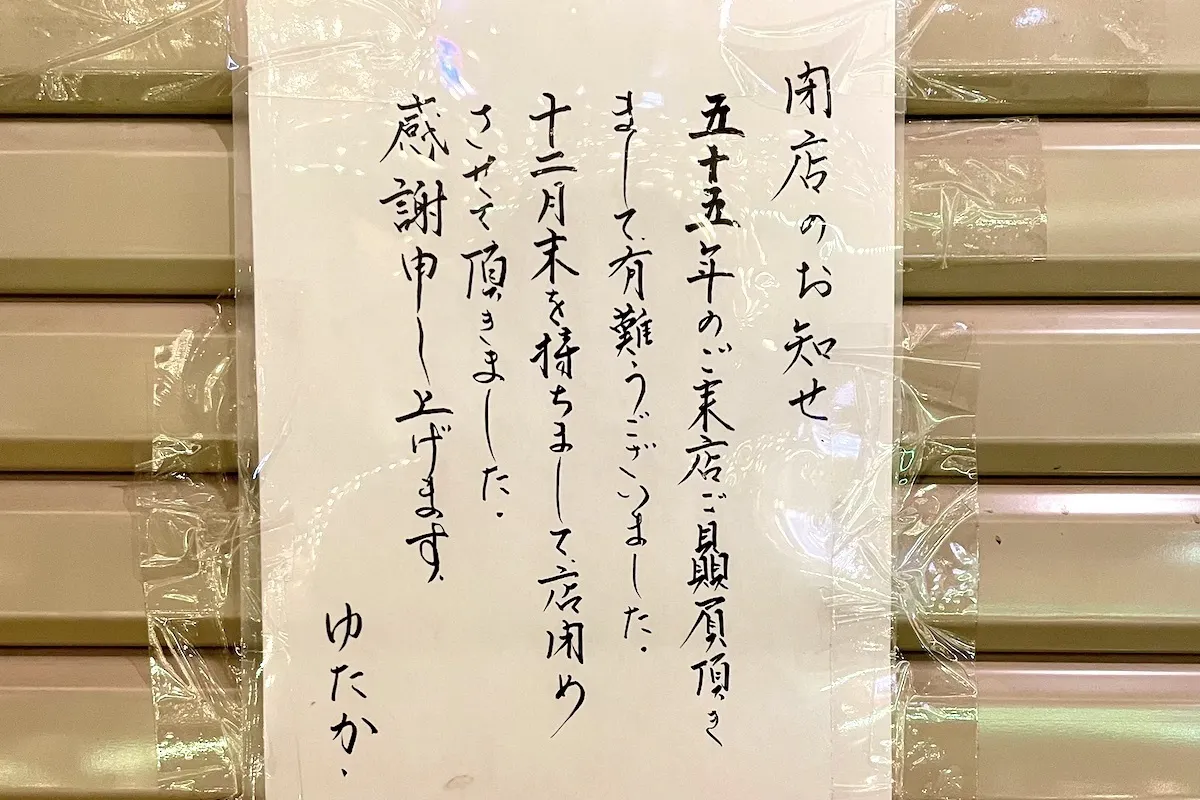 閉店のお知せ.
五十五年のご来店ご贔屓頂き
まして有難うございました.
十二月末を持ちまして店閉め
させて頂きました.
感謝申し上げます.
ゆたか.